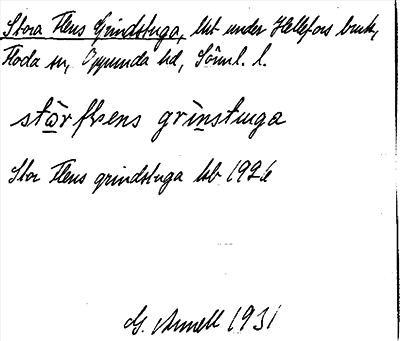 Stora Flens Grindstuga, lht under Hellefors bruk,
Floda sn, Oppunda hd, Söml. l.
stòrflens grinstuga
Stor Flens grindstuga hb 1926
G. Annell 1931